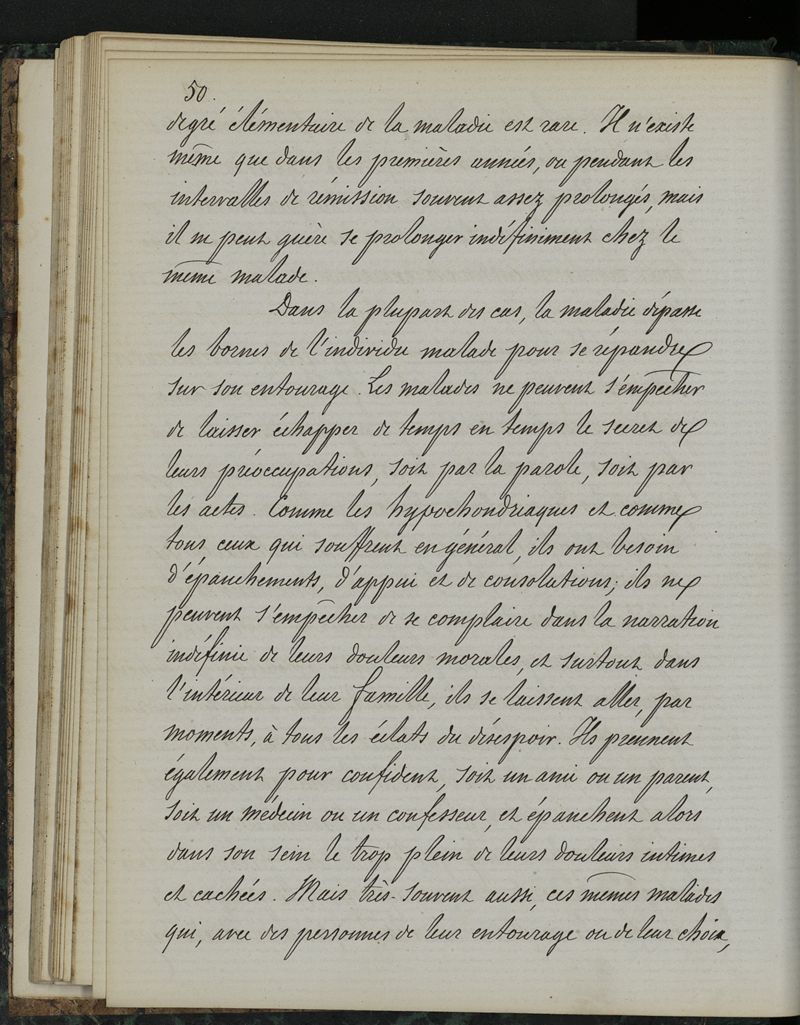 50.
degré élémentaire de la maladie est rare. Il n'existe
même que dans les premières années, ou pendant les
intervalles de rémission souvent assez prolongés, mais
il ne peut guère se prolonger indéfiniment chez le
même malade.
Dans la plupart des cas, la maladie dépasse
les bornes de l'individu malade pour se répandre
sur son entourage. Les malades ne peuvent s'empêcher
de laisser échapper de temps en temps le secret de
leurs préoccupations, soit par la parole, soit par
les actes. Comme les hypochondriaques et comme
tous ceux qui souffrent en général, ils ont besoin
d'épanchements, d'appui et de consolations; ils ne
peuvent s'empêcher de se complaire dans la narration
indéfinie de leurs douleurs morales, et surtout dans
l'intérieur de leur famille, ils se laissent aller, par
moments, à tous les éclats du désespoir. Ils prennent
également pour confident, soit un ami ou un parent,
soit un médecin ou un confesseur, et épanchent alors
dans son sein le trop plein de leurs douleurs intimes
et cachées. Mais très-souvent aussi, ces mêmes malades
qui, avec des personnes de leur entourage ou de leur choix,